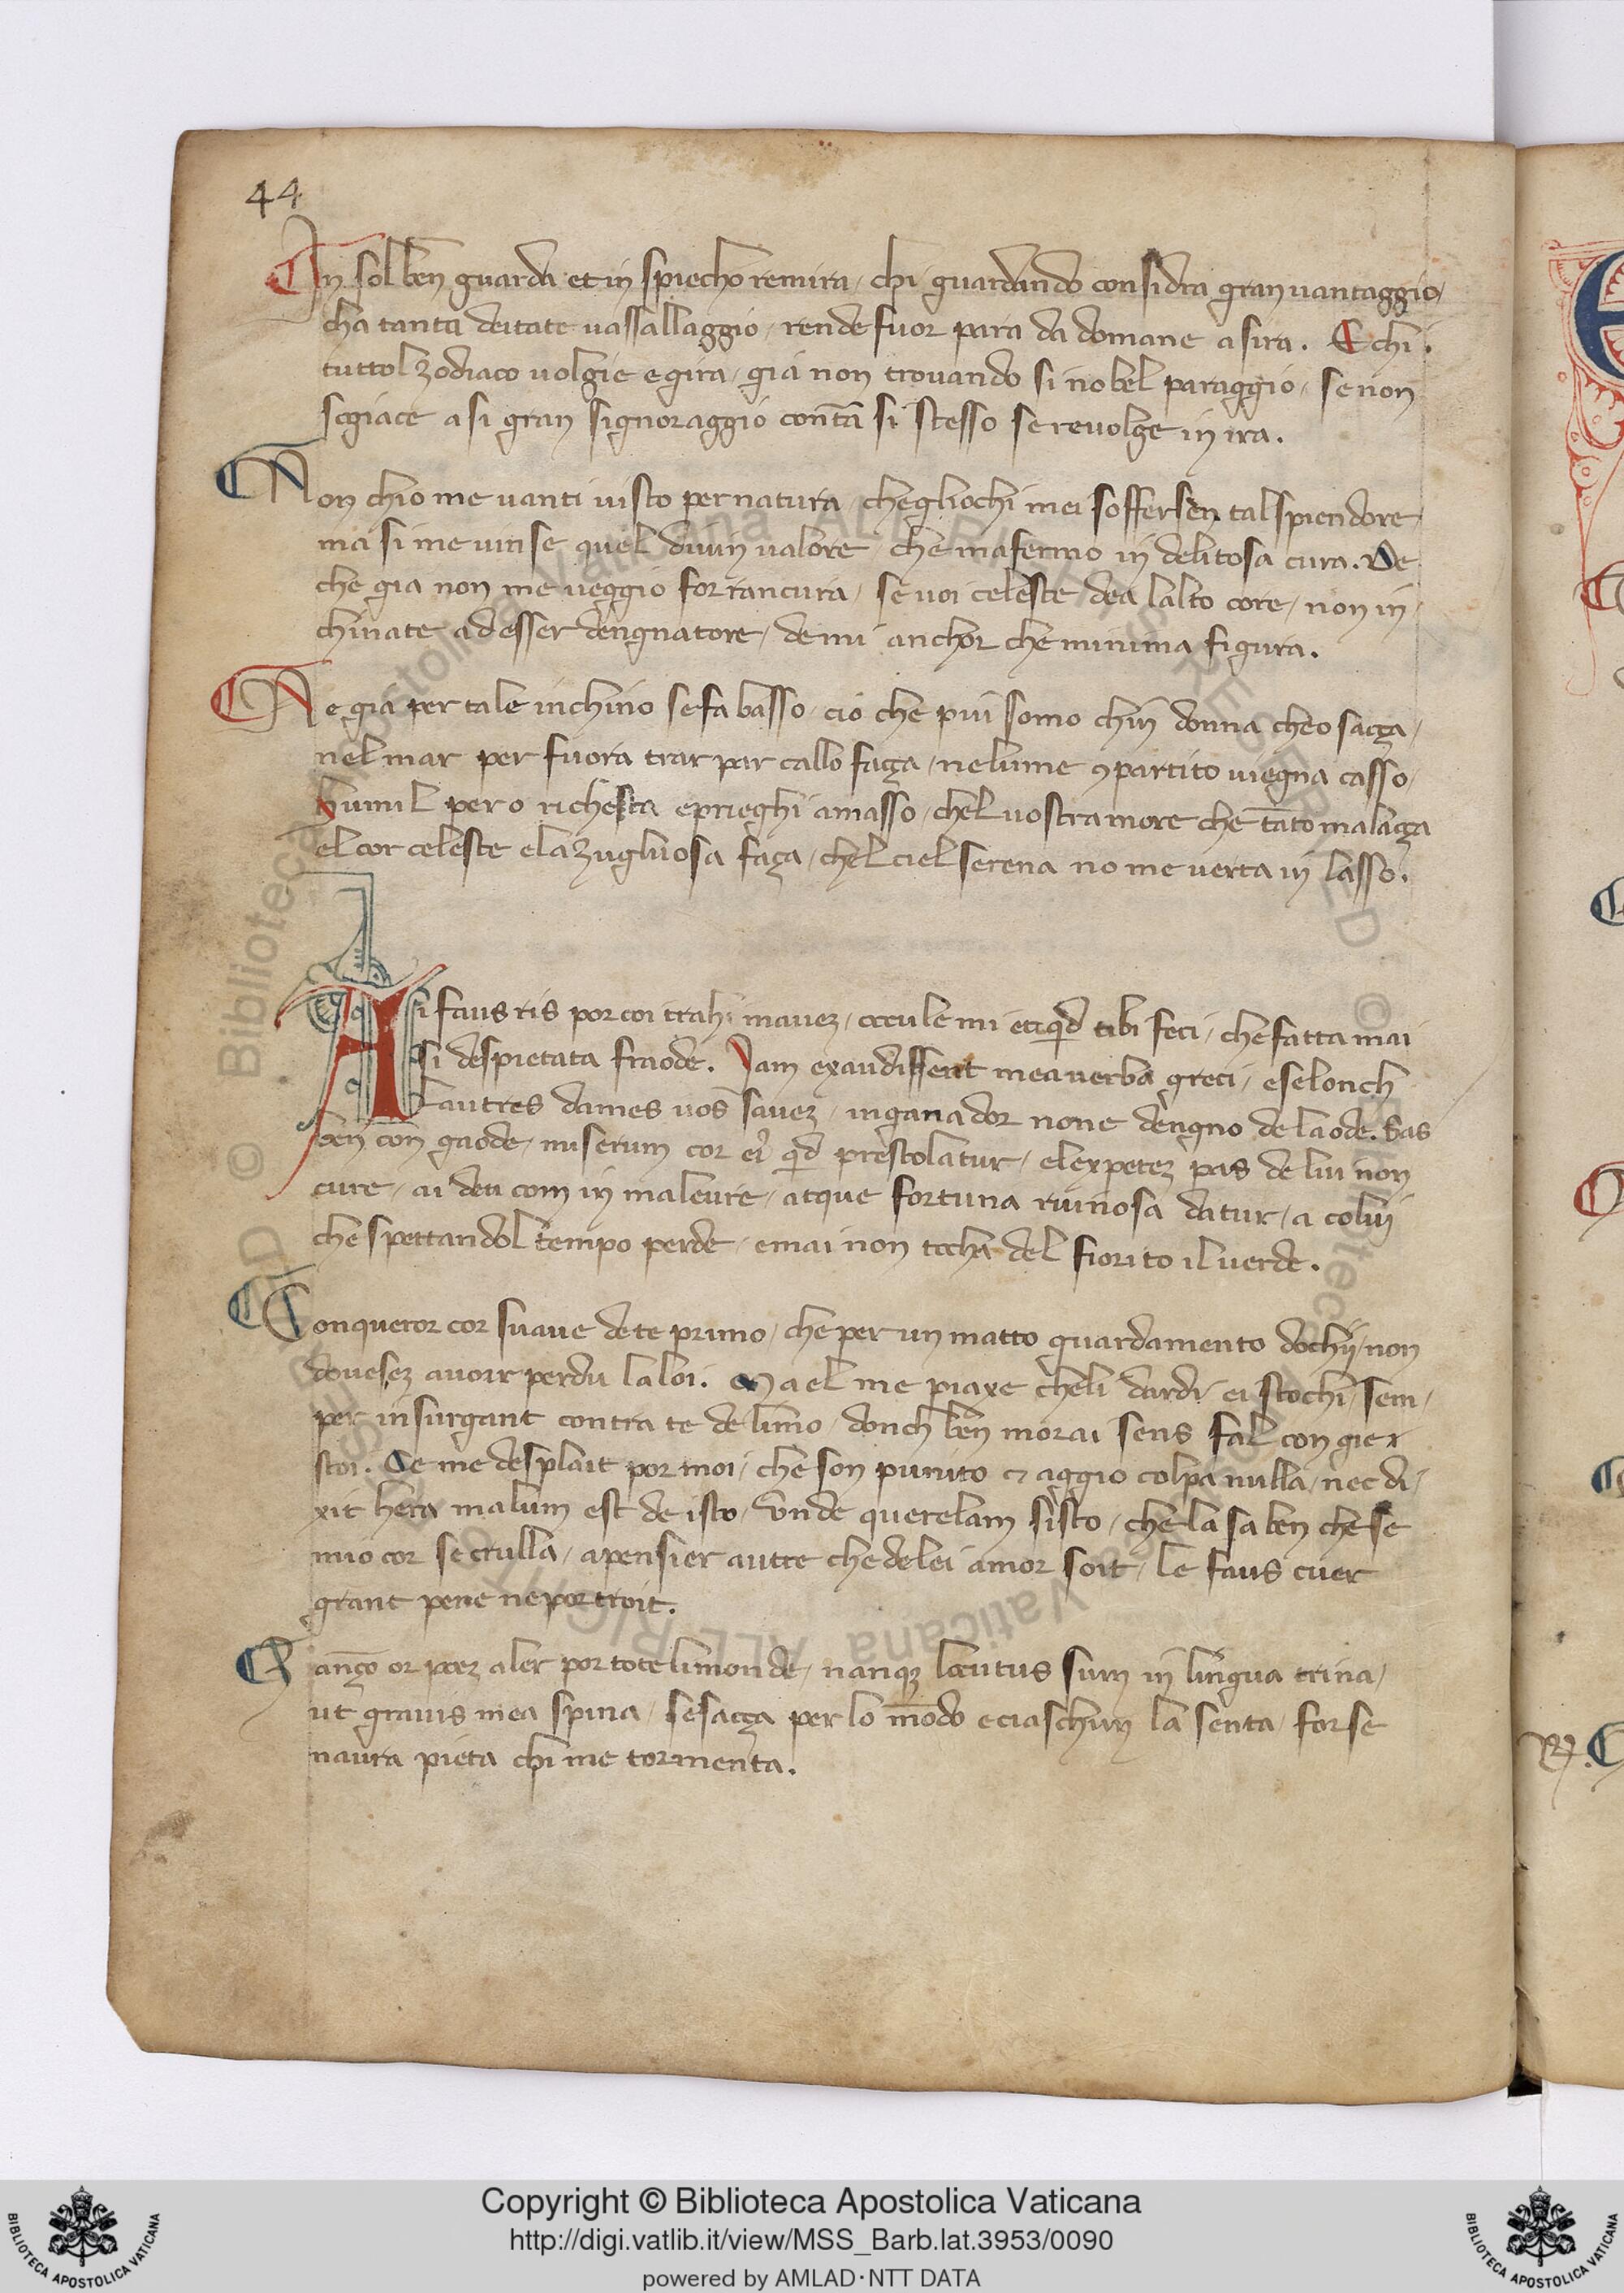 44
In sol ben guarda et in spiecho remira / chi guardando considra gran vantaggio /
cha tanta deitate vassallaggio / rende fuor para da domane a sira. E chi
tuttol zodiaco volgie e gira / gia non trovando si nobel paraggio / se non
sogiace a si gran signoraggio cont̄a si stesso se revolge in ira.
Non chio me vanti visto per natura / che gliochi mei soffersen tal spiendore /
ma si me vinse quel divin valore / che mafermo in delitosa cura. De
che gia non me veggio for rancura / se voi celeste dea lalto core / non in
chinate ad esser dengnatore / de mi anchor che minima figura.
Ne gia per tale inchino se fa basso / cio che piu somo chin donna cheo sacça /
nel mar per fuora trar par callo faça / ne lume ꝯpartito viegna casso /
humil pero richesta e prieghi amasso / chel vostramore che tāto malaça
el cor celeste ela zugliosa faça / chel ciel serena no me verta in lasso.
Ai faus ris por coi trahi mavez / occule mi et qd̄ tibi feci / che fatta mai
si despietata fraode. Iam exaudissent mea verba greci / e selonch
autres dames vos savez / inganador none dengno de laode. Sas
ben com̄ gaode / miserum cor ei9 qd̄ prestolatur / el expetez pas de lui non
cure / ai deu com in maleure / atque fortuna ruinosa datur / a colui
che spettandol tempo perde / e mai non tocha del fiorito il verde.
Conqueror cor suave de te primo / che per un matto guardamento dochij / non
dovesez avoir perdu la loi. Ma el me piaxe cheli dardi ei stochi / sem
per insurgant contra te de limo / donch ben morai sens fal con gie x
stoi. Ce me desplait por moi / che son punito & aggio colpa nulla / nec di
xit hera malum est de isto / Unde querelam sisto / che la sa ben che se
mio cor se crulla / a pensier autre che de lei amor soit / le faus cuer
grant pene ne portroit.
Canço or poez aler por tote li monde / nanqꝫ locutus sum in lingua trina /
ut gravis mea spina / se sacça per lo mōdo e ciaschun la senta / forse
navra pieta chi me tormenta.
Copyright © Biblioteca Apostolica Vaticana
http://digi.vatlib.it/view/MSS_Barb.lat.3953/0090
powered by AMLAD·NTT DATA
BIBLIOTECA APOSTOLICA VATICANA
BIBLIOTECA APOSTOLICA VATICANA